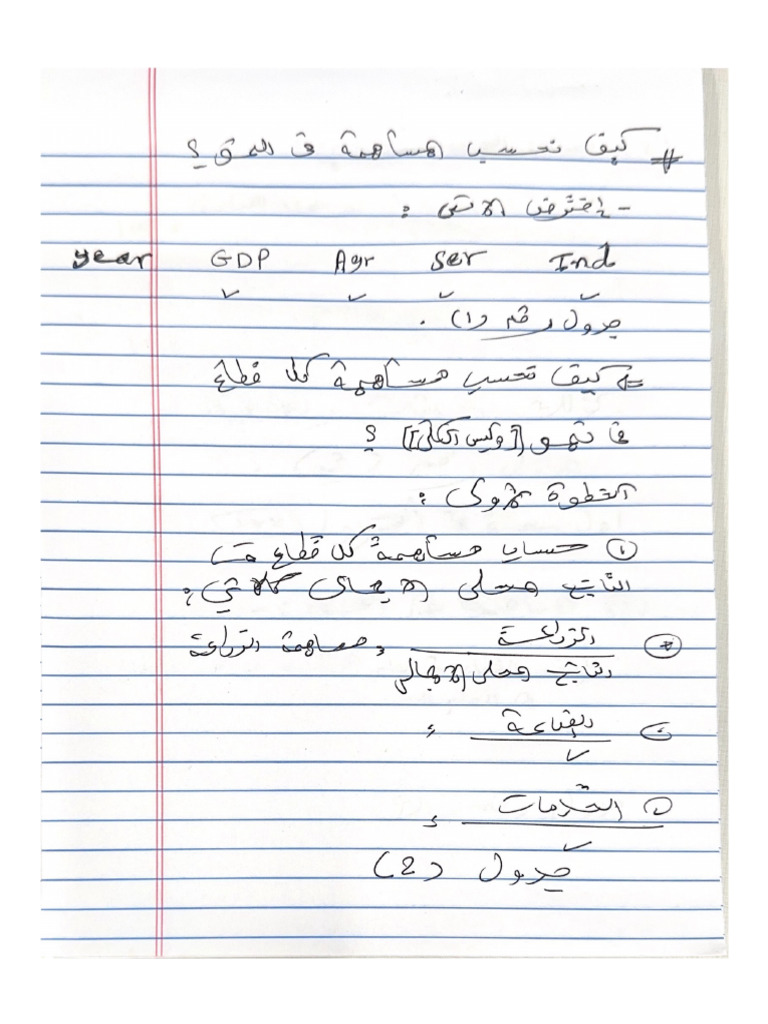 # كيف نحسب مساهمة في النمو ؟
- إفترض الاتي :
year GDP Agr Ser Ind
✓ ✓ ✓ ✓
جدول رقم (1) .
<= كيف نحسب مساهمة كل قطاع
في نمو [وليس الكلي] ؟
الخطوة الاولى :
① حساب مساهمة كل قطاع من
الناتج محلي الاجمالي كالاتي :
الزراعة = مساهمة الزراعة
الناتج محلي الاجمالي
الصناعة =
✓
الخدمات =
✓
جدول (2)